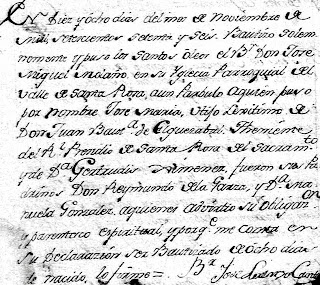 En Diez y ocho dias del mes de Noviembre de
mil setecientos setenta y seis. Bautizo solem
nemente y puso los Santos oleos el Br. Don José
Miguel Molano, en su Yglecia Parroquial del
valle de Santa Rosa, a un Parbulo a quien puso
por nombre José Maria, Hijo Lexitimo de
Don Juan Baut.ª de Ysquerabel Theniente
del R.l Precidio de Santa Rosa del Sacram.to
y de D.ª Gertrudis Ximenez, fueron sus Pa
drinos Don Reymundo de la Garza, y D.ª Ma
nuela Gonzalez, a quienes advirtio su obligaz.on
y parentesco espiritual, y porq. me consta en
su Declarazion ser Bautizado de ocho dias
de nacido, lo firme=
B.r José